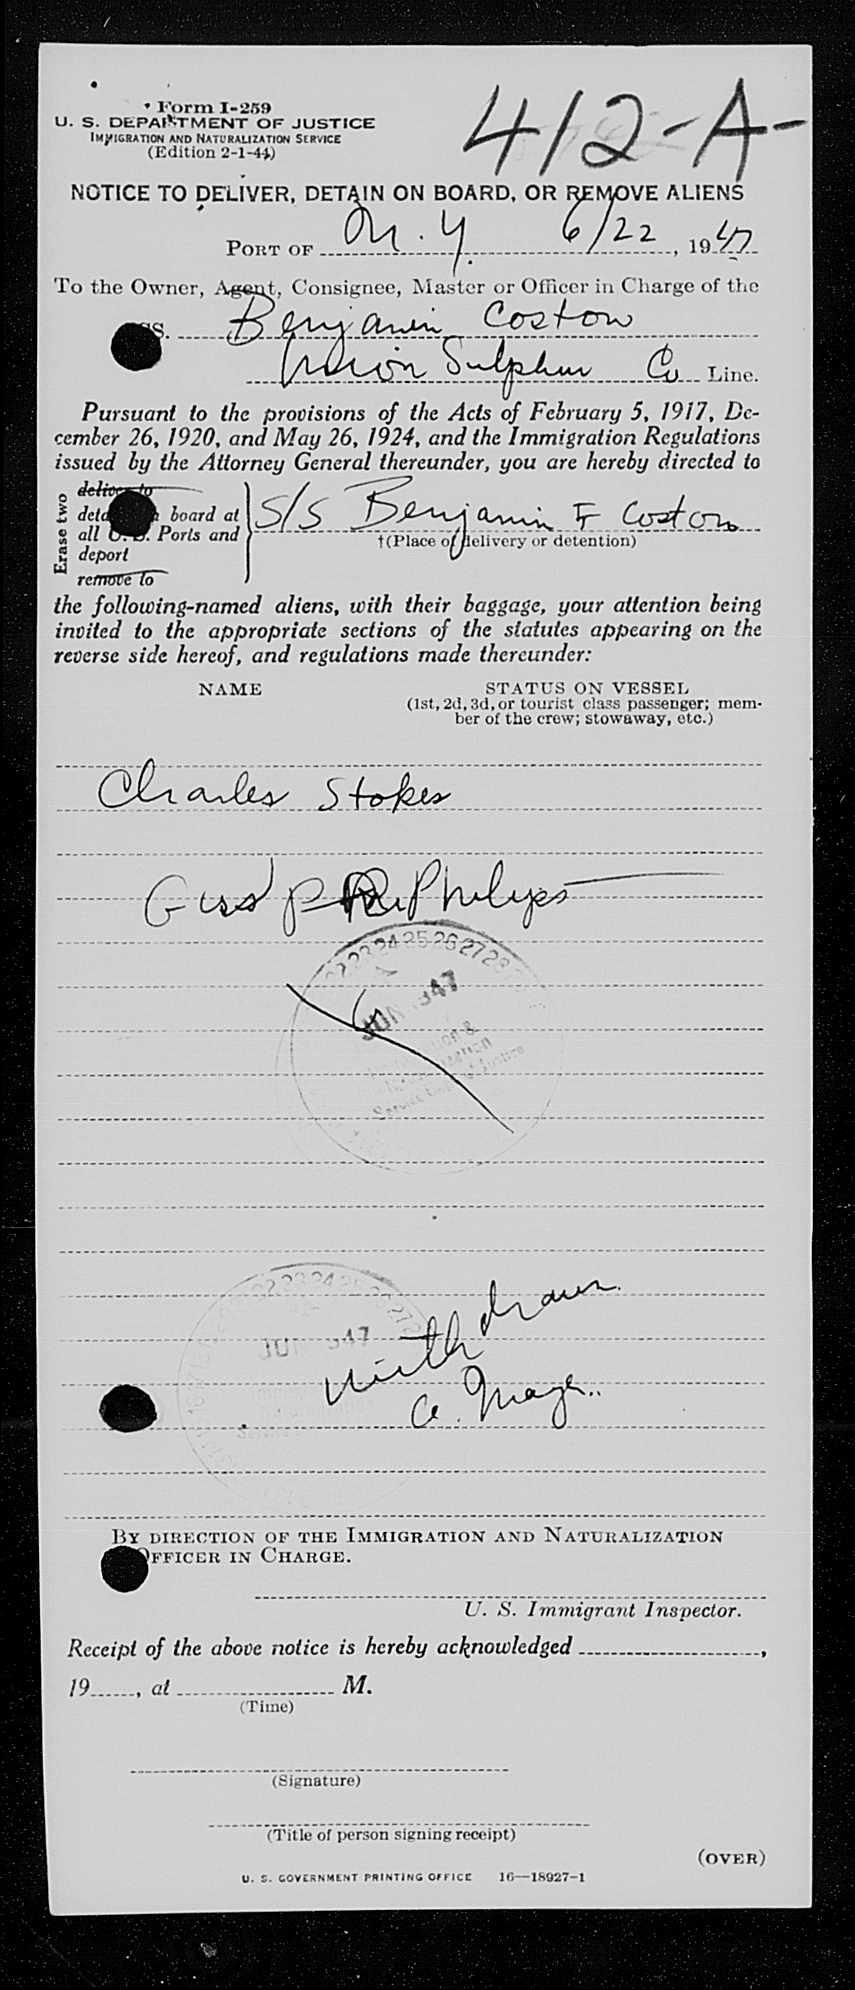 412-A-
Form I-259
U. S. DEPARTMENT OF JUSTICE
IMMIGRATION AND NATURALIZATION SERVICE
(Edition 2-1-44)
NOTICE TO DELIVER, DETAIN ON BOARD, OR REMOVE ALIENS
PORT OF N. Y. 6/22, 1947
To the Owner, Agent, Consignee, Master or Officer in Charge of the
SS. Benjamin Coston
Union Sulphur Co Line.
Pursuant to the provisions of the Acts of February 5, 1917, De-
cember 26, 1920, and May 26, 1924, and the Immigration Regulations
issued by the Attorney General thereunder, you are hereby directed to
Erase two
deliver to
detain on board at
all U. S. Ports and
deport
remove to
S/S Benjamin F Coston
†(Place of delivery or detention)
the following-named aliens, with their baggage, your attention being
invited to the appropriate sections of the statutes appearing on the
reverse side hereof, and regulations made thereunder:
NAME STATUS ON VESSEL
(1st, 2d, 3d, or tourist class passenger; mem-
ber of the crew; stowaway, etc.)
Charles Stokes
Guss Philips
22 23 24 25 26 27 28
JUN 947
Service Justice
22 23 24 25 26 27 2
JUN 947
Withdrawn
a. Mayer
BY DIRECTION OF THE IMMIGRATION AND NATURALIZATION
OFFICER IN CHARGE.
U. S. Immigrant Inspector.
Receipt of the above notice is hereby acknowledged ,
19 , at M.
(Time)
(Signature)
(Title of person signing receipt)
(OVER)
U. S. GOVERNMENT PRINTING OFFICE 16—18927-1